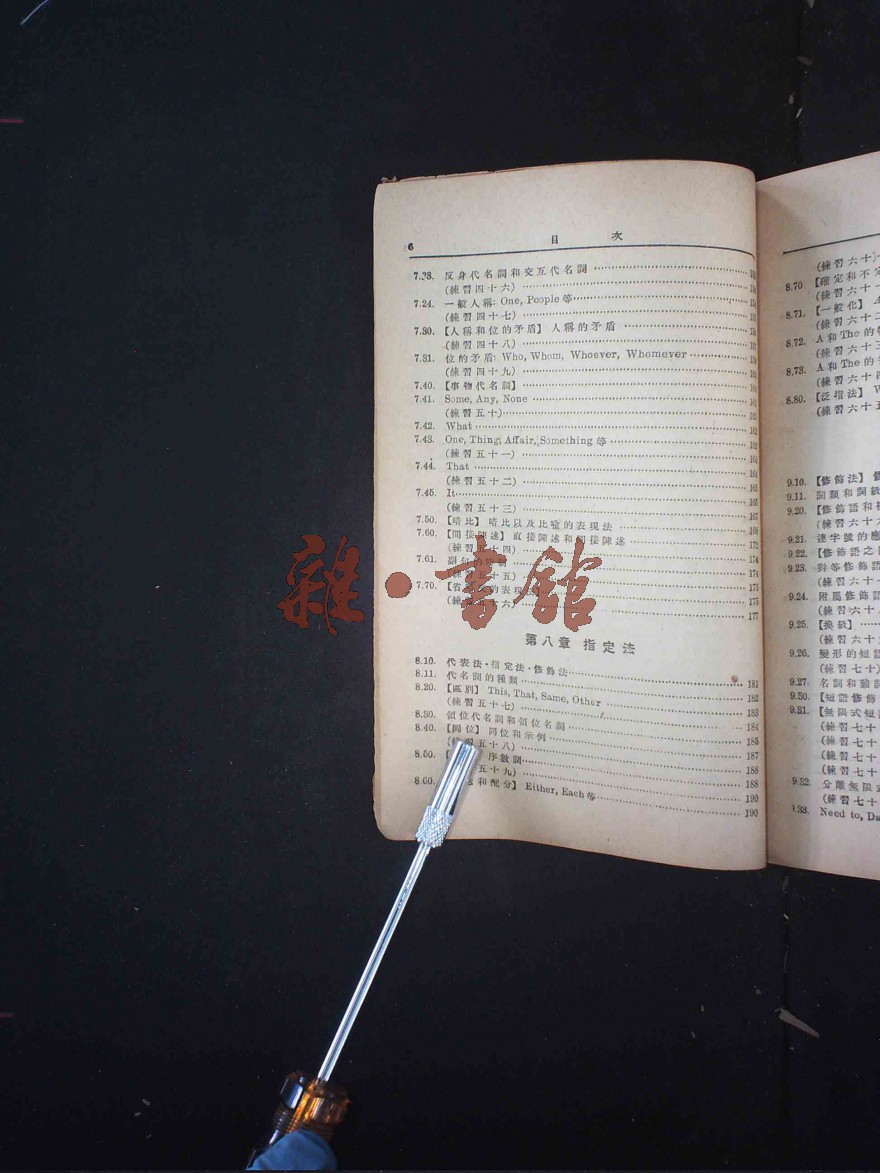 6
目 次
7.23. 反身代名詞和交互代名詞
(練習四十六)
7.24. 一般人稱: One, People 等
(練習四十七)
7.30. 【人稱和位的矛盾】 人稱的矛盾
(練習四十八)
7.31. 位的矛盾: Who, Whom, Whoever, Whomever
(練習四十九)
7.40. 【事物代名詞】
7.41. Some, Any, None
(練習五十)
7.42. What
7.43. One, Thing, Affair, Something 等
(練習五十一)
7.44. That
(練習五十二)
7.45. It
(練習五十三) 167
7.50. 【暗比】 暗比以及比喩的表現法
7.60. 【間接陳述】 直接陳述和間接陳述 172
十四) 174
7.61. 副句的 174
五十五) 175
7.70. 【省 的表現法 175
(練 十六) 177
雜·書館
第八章 指定法
8.10. 代表法·指定法·修飾法
8.11. 代名詞的種類 181
8.20. 【區別】 This, That, Same, Other 182
(練習五十七) 183
8.30. 領位代名詞和領位名詞 184
8.40. 【同位】 同位和示例 185
習五十八) 187
8.50. 序數詞 188
五十九) 188
8.60. 和配分】 Either, Each 等 190
190
(練習六十)
8.70 【確定和不定
(練習六十一
8.71. 【一般化】
(練習六十二
8.72. A 和 The 的
(練習六十三
8.73. A 和 The 的
(練習六十四
8.80. 【泛指法】
(練習六十五
9.10. 【修飾法】
9.11. 詞類和詞級
9.20. 【修飾語和
(練習六十六
9.21. 連字號的應
9.22. 【修飾語之
9.23. 對等修飾語
(練習六十
9.24. 附屬修飾語
(練習六十
9.25. 【換級】
(練習六十
9.26. 變形的短語
(練習七十)
9.27. 名詞和動詞
9.30. 【短語修飾
9.31. 【無限式短
(練習七十
(練習七十
(練習七十
(練習七十
9.32. 分離無限式
(練習七十
9.33. Need to, Da